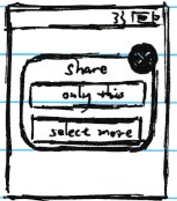 share
only this
select more